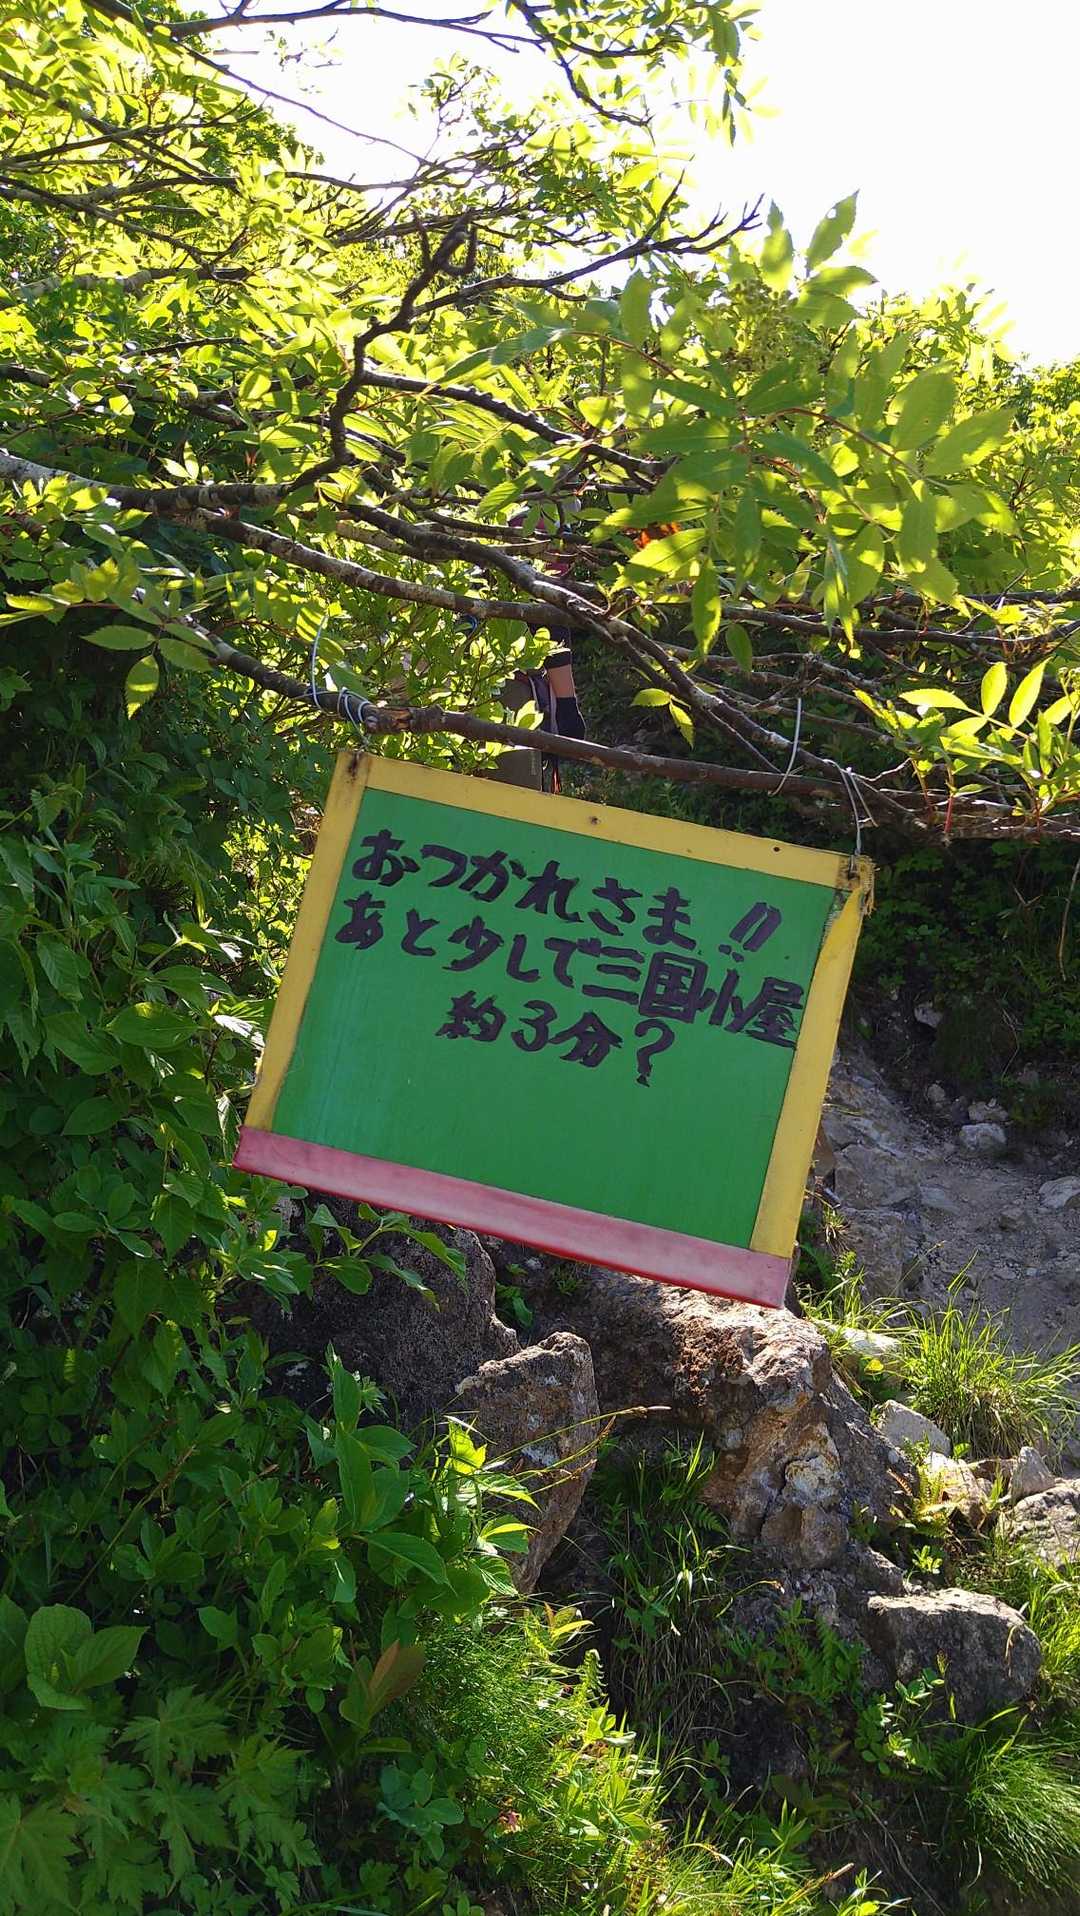 おつかれさま!!
あと少しで三国小屋
約3分?